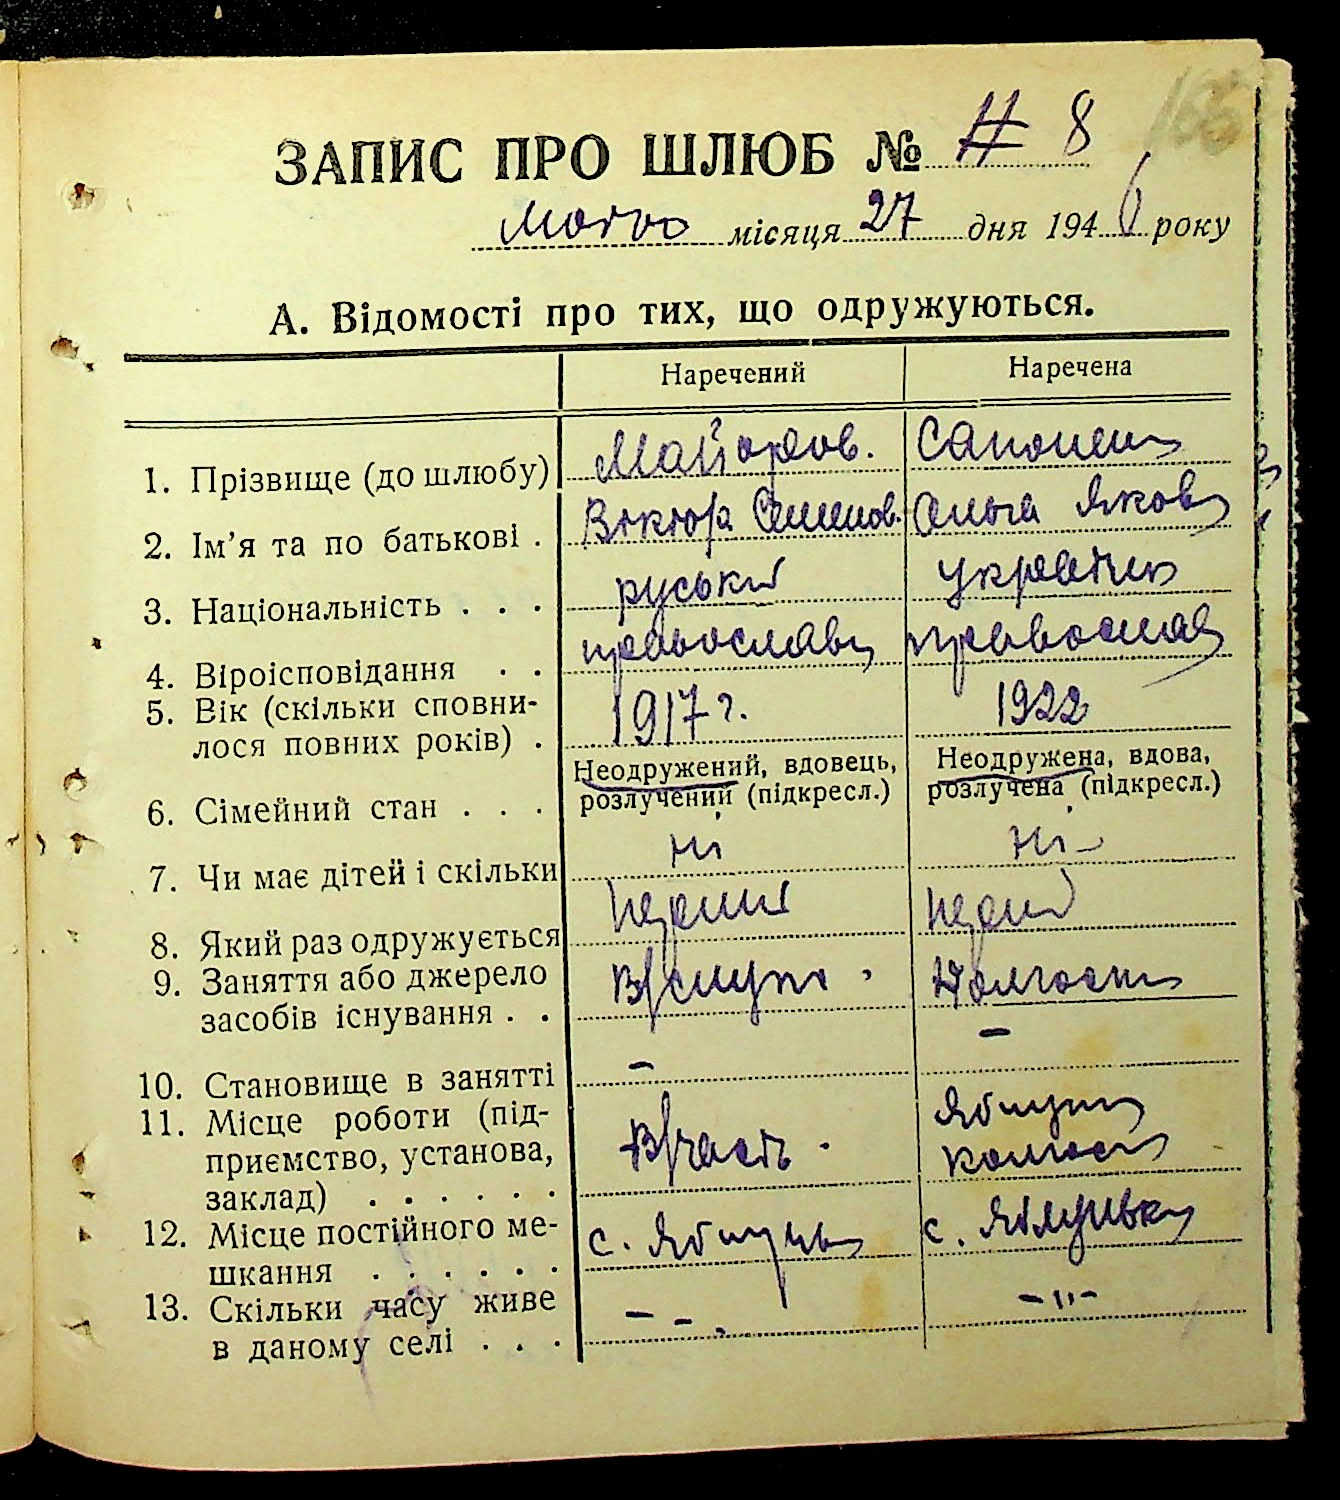 165
ЗАПИС ПРО ШЛЮБ № 8
місяця 27 дня 1946 року
А. Відомості про тих, що одружуються.
Наречений Наречена
1. Прізвище (до шлюбу) Майоров.
2. Ім'я та по батькові . Віктор Ольга Яковл
3. Національність . . . руський українк
4. Віроісповідання . . православн православ
5. Вік (скільки сповни-
лося повних років) . 1917 г. 1922
Неодружений, вдовець, Неодружена, вдова,
6. Сімейний стан . . . розлучений (підкресл.) розлучена (підкресл.)
7. Чи має дітей і скільки Ні Ні -
8. Який раз одружується
9. Заняття або джерело
засобів існування . .
10. Становище в занятті - -
11. Місце роботи (під-
приємство, установа,
заклад) . . . . . . В/часть .
12. Місце постійного ме-
шкання . . . . . . с. с. Яблунівку
13. Скільки часу живе
в даному селі . . . - - . -"-